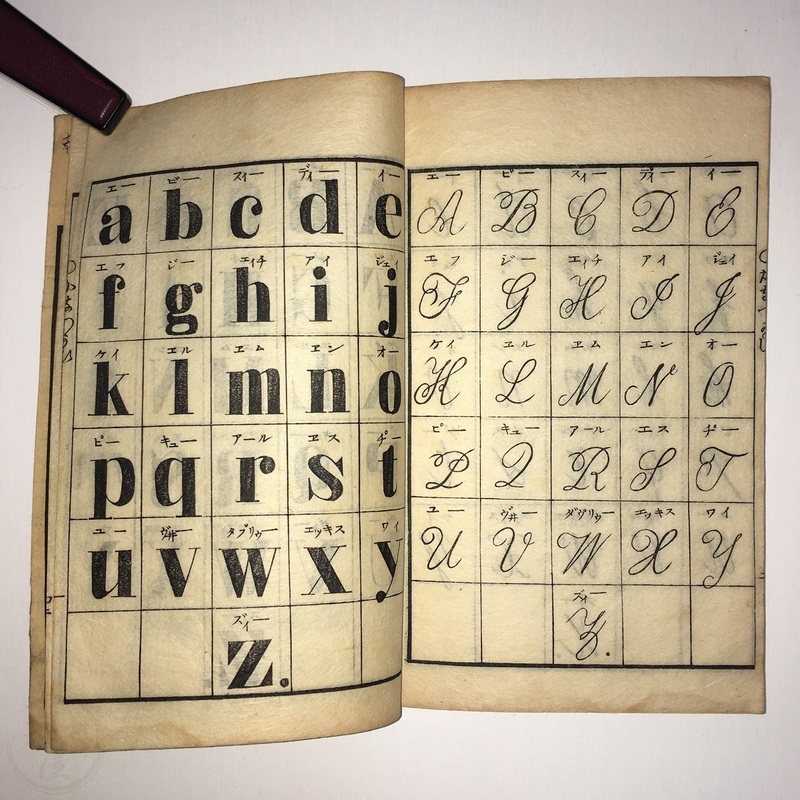 エー ビー スィー ディー イー
a b c d e
エフ ジー エイチ アイ ジェイ
f g h i j
ケイ エル エム エン オー
k l m n o
ピー キュー アール ヱス チー
p q r s t
ユー ヴ井ー タブリウー エッキス ワイ
u v w x y
ズィー
z.
エー ビー スィー ディー イー
A B C D E
エフ ジー エイチ アイ ジェイ
F G H I J
ケイ エル エム エン オー
K L M N O
ピー キュー アール エス チー
P Q R S T
ユー ヴ井ー ダヴリウー エッキス ワイ
U V W X Y
ズィー
Z.